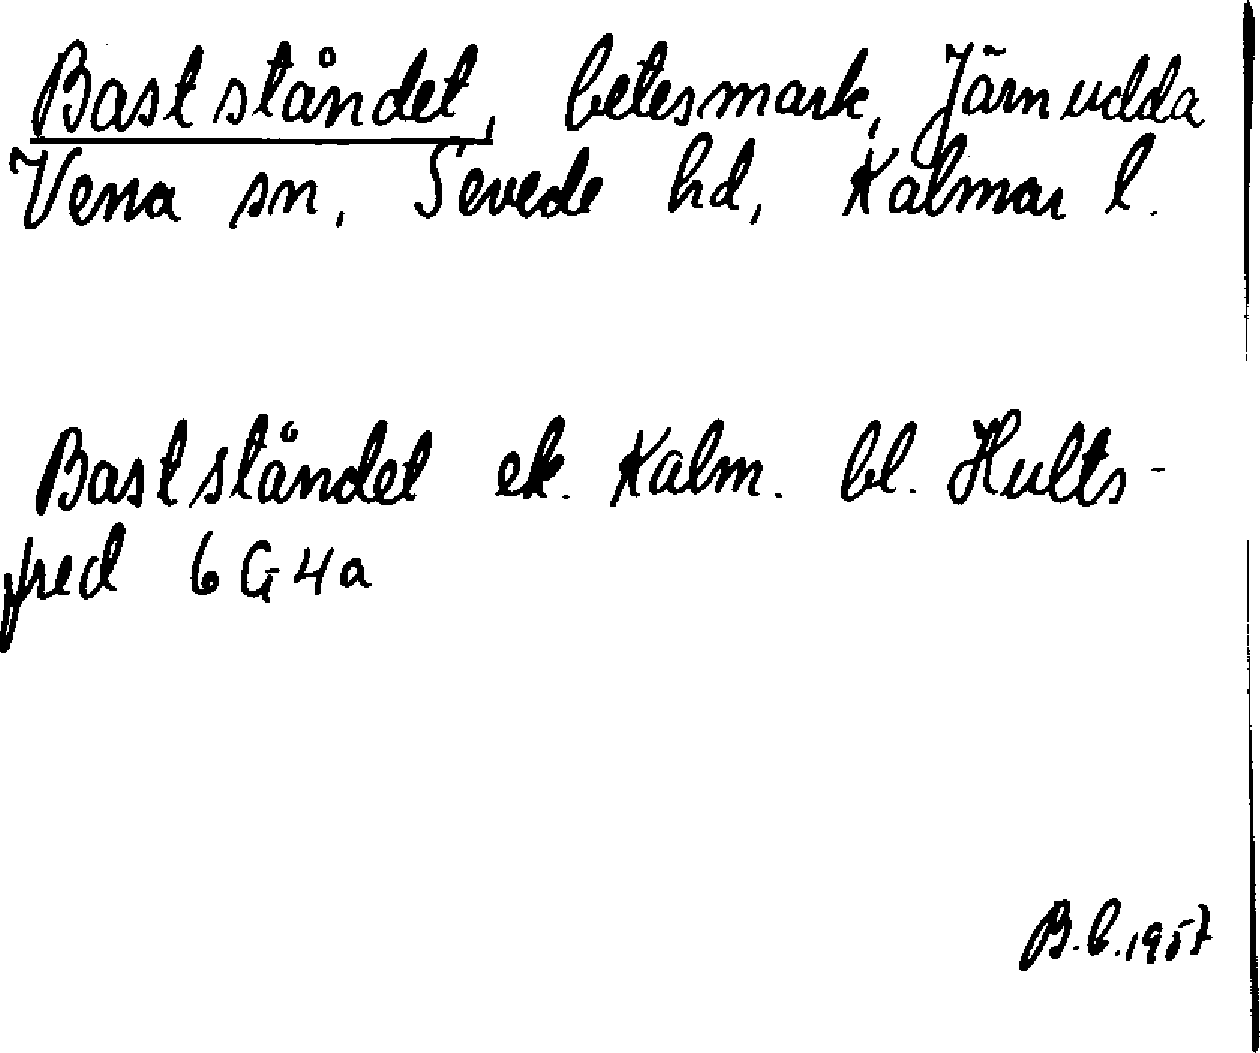 Bastståndet, betesmark, Järnudda
Vena sn, Sevede hd, Kalmar l.
Bastståndet ek. Kalm. bl. Hults-
fred 6G4a
B.b.1957